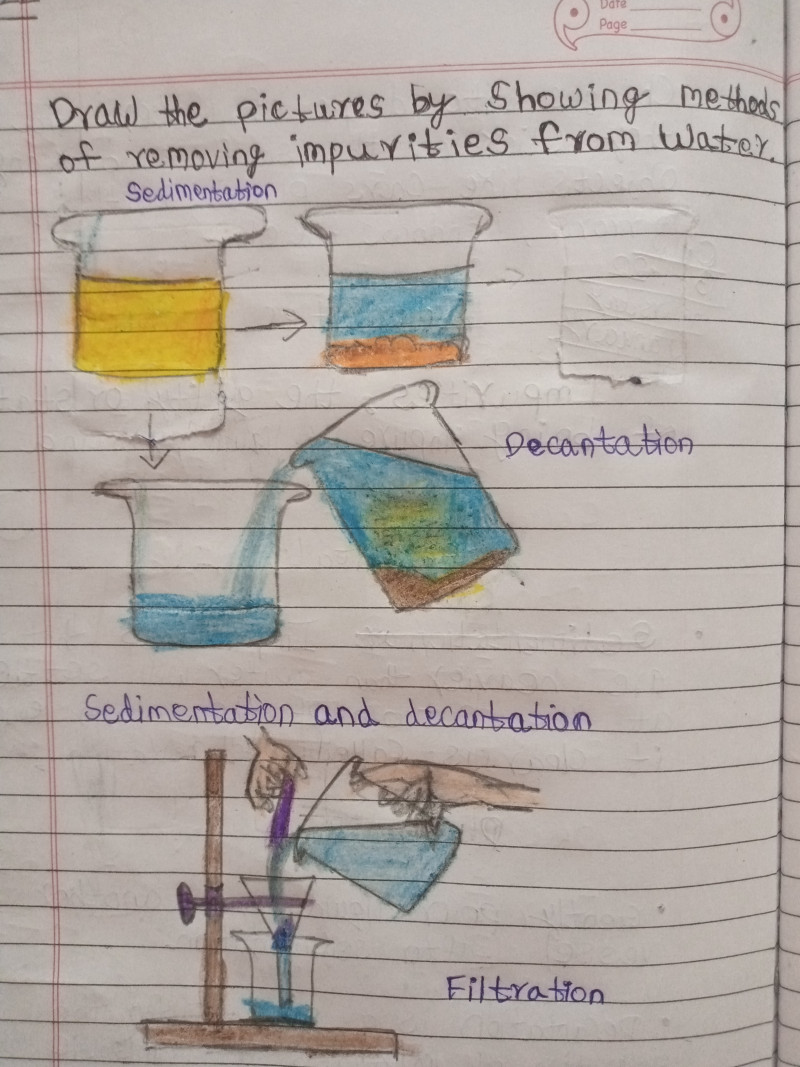 Date
Page
Draw the pictures by Showing methods
of removing impurities from Water.
Sedimentation
Decantation
Sedimentation and decantation
Filtration